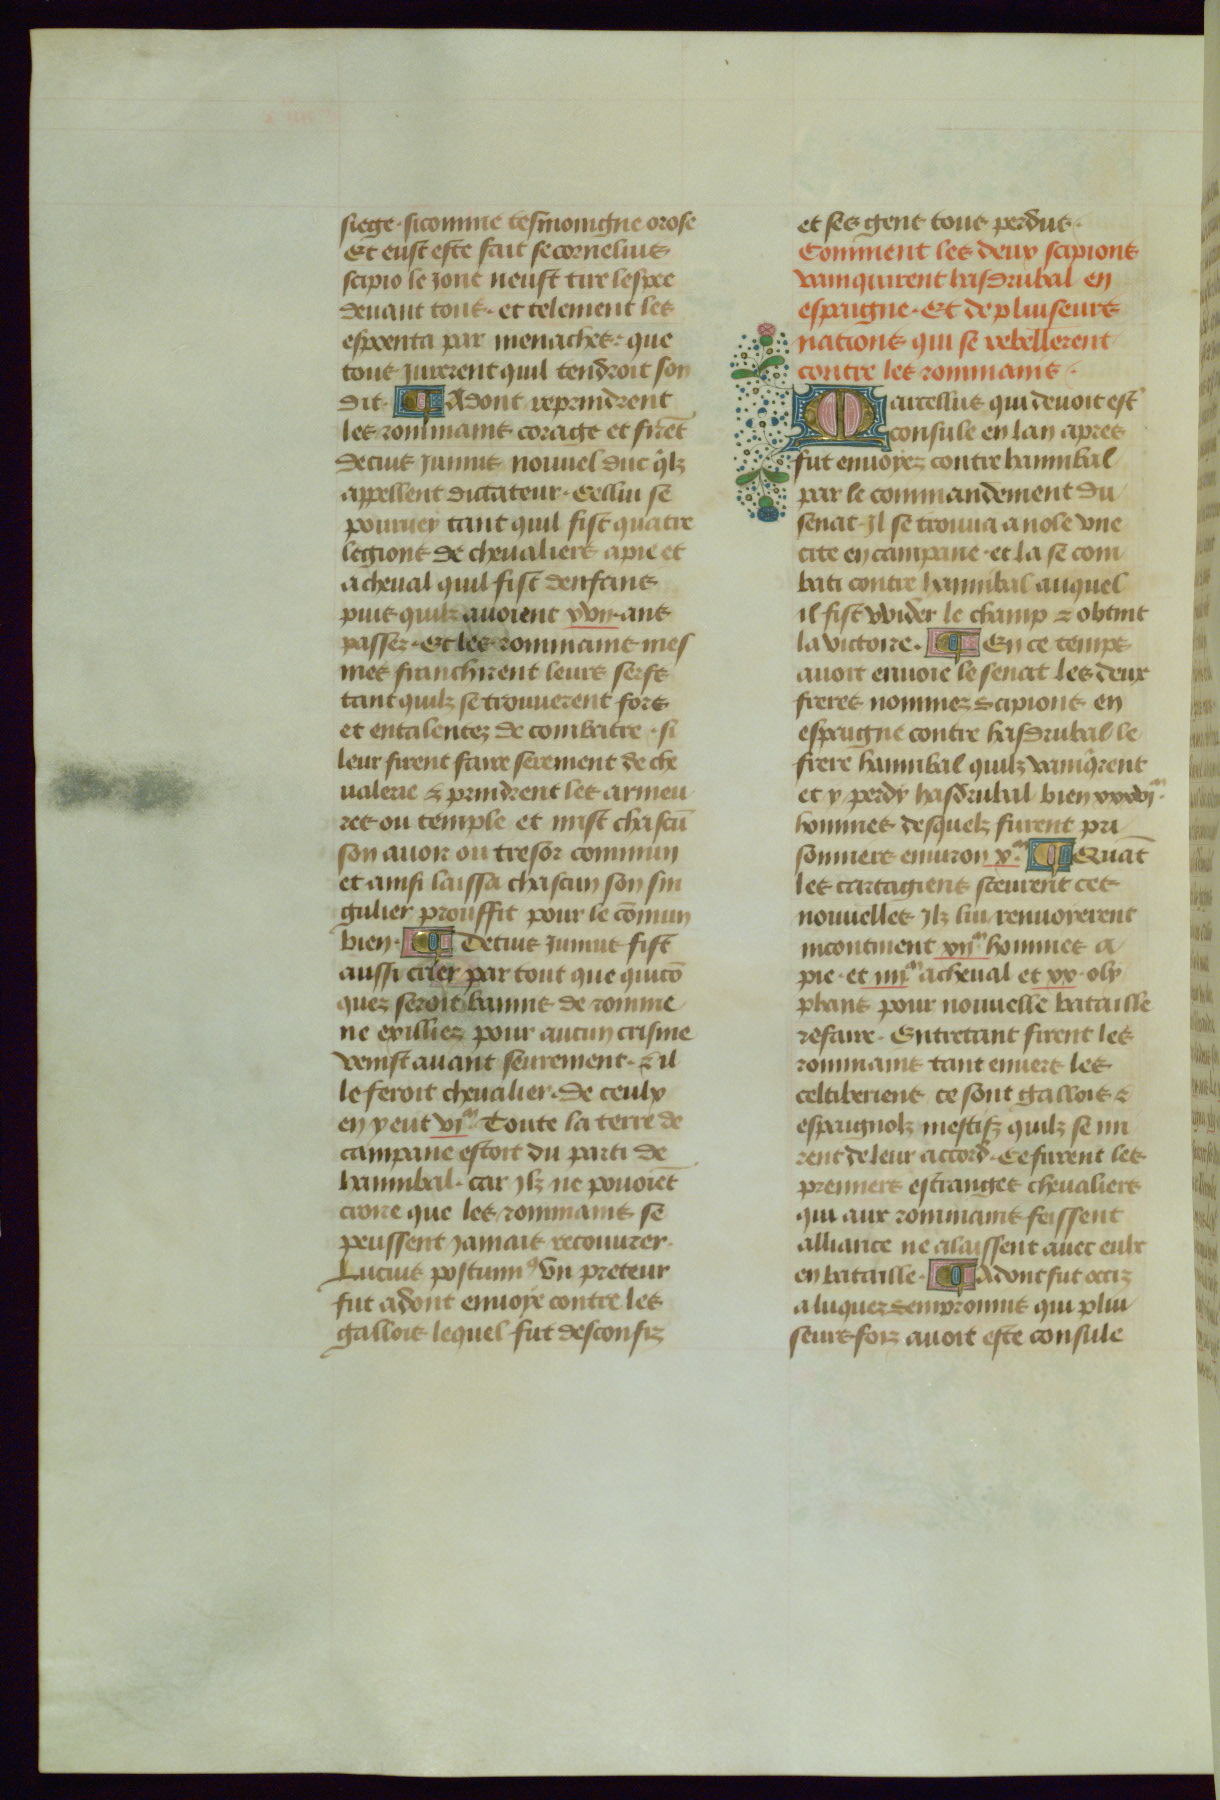 siege · sicomme tesmoingne orose
Et eust este fait se cornelius
scipio le jone neust tire lespee
deuant tous · et telement les
espoenta par menaches · que
tous jurerent quil tendroit son
dit · Adont reprindrent
les rommains corage et firēt
decius junius nouuel duc q̄lz
appellent dictateur · Cellui se
pourueÿ tant quil fist quatre
legions de cheualiers a pie et
a cheual quil fist denfans
puis quilz auoient xvii · ans
passez · Et les rommains mes
mes franchirent leurs serfs
tant quilz se trouuerent fors
et entalentez de combatre · si
leur firent faire serement de che
ualerie & prindrent les armeu
res ou temple et mist chascū
son auoir ou tresor commun
et ainsi laissa chascun son sin
gulier prouffit pour le cōmun
bien · Decius junius fist
aussi crier par tout que quicō
ques seroit bannis de romme
ne exilliez pour aucun crisme
venist auant seurement · & il
le feroit cheualier · de ceulx
en y eut vi m Toute la terre de
campane estoit du parti de
hannibal · car jlz ne pouoiēt
croire que les rommains se
peussent jamais recouurer ·
Lucius postumꝰ vn preteur
fut adont enuoye contre les
gallois lequel fut desconfiz
et ses gens tous perdus ·
Comment les deux scipions
vainquirent hasdrubal en
espaigne · Et de pluiseurs
nations qui se rebellerent
contre les rommains ·
Marcellus qui deuoit est̄
consule en lan apres
fut enuoyez contre hannibal
par le commandement du
senat · Jl se trouua a nole vne
cite en campane · et la se com
bati contre hannibal auquel
il fist wider le champ & obtint
la victoire · En ce temps
auoit enuoie le senat les deux
freres nommez scipions en
espaigne contre hasdrubal le
frere hannibal quilz vainq̄rent
et y perdÿ hasdrubal bien xxxvj m ·
hommes desquelz furent pri
sonniers enuiron x · m Quāt
les cartagiens sceurent ces
nouuelles jlz lui renuoyerent
incontinent xij m hommes a
pie · et iiij m a cheual et xx · oly
phans pour nouuelle bataille
refaire · Entretant firent les
rommains tant enuers les
celtiberiens ce sont gallois &
espaignolz mestifz quilz se mi
rent de leur accord · Ce furent les
premiers estranges cheualiers
qui aux rommains feissent
alliance ne alaissent auec eulx
en bataille · Adont fut occiz
a luques sempronius qui plui
seurs foiz auoit este consule